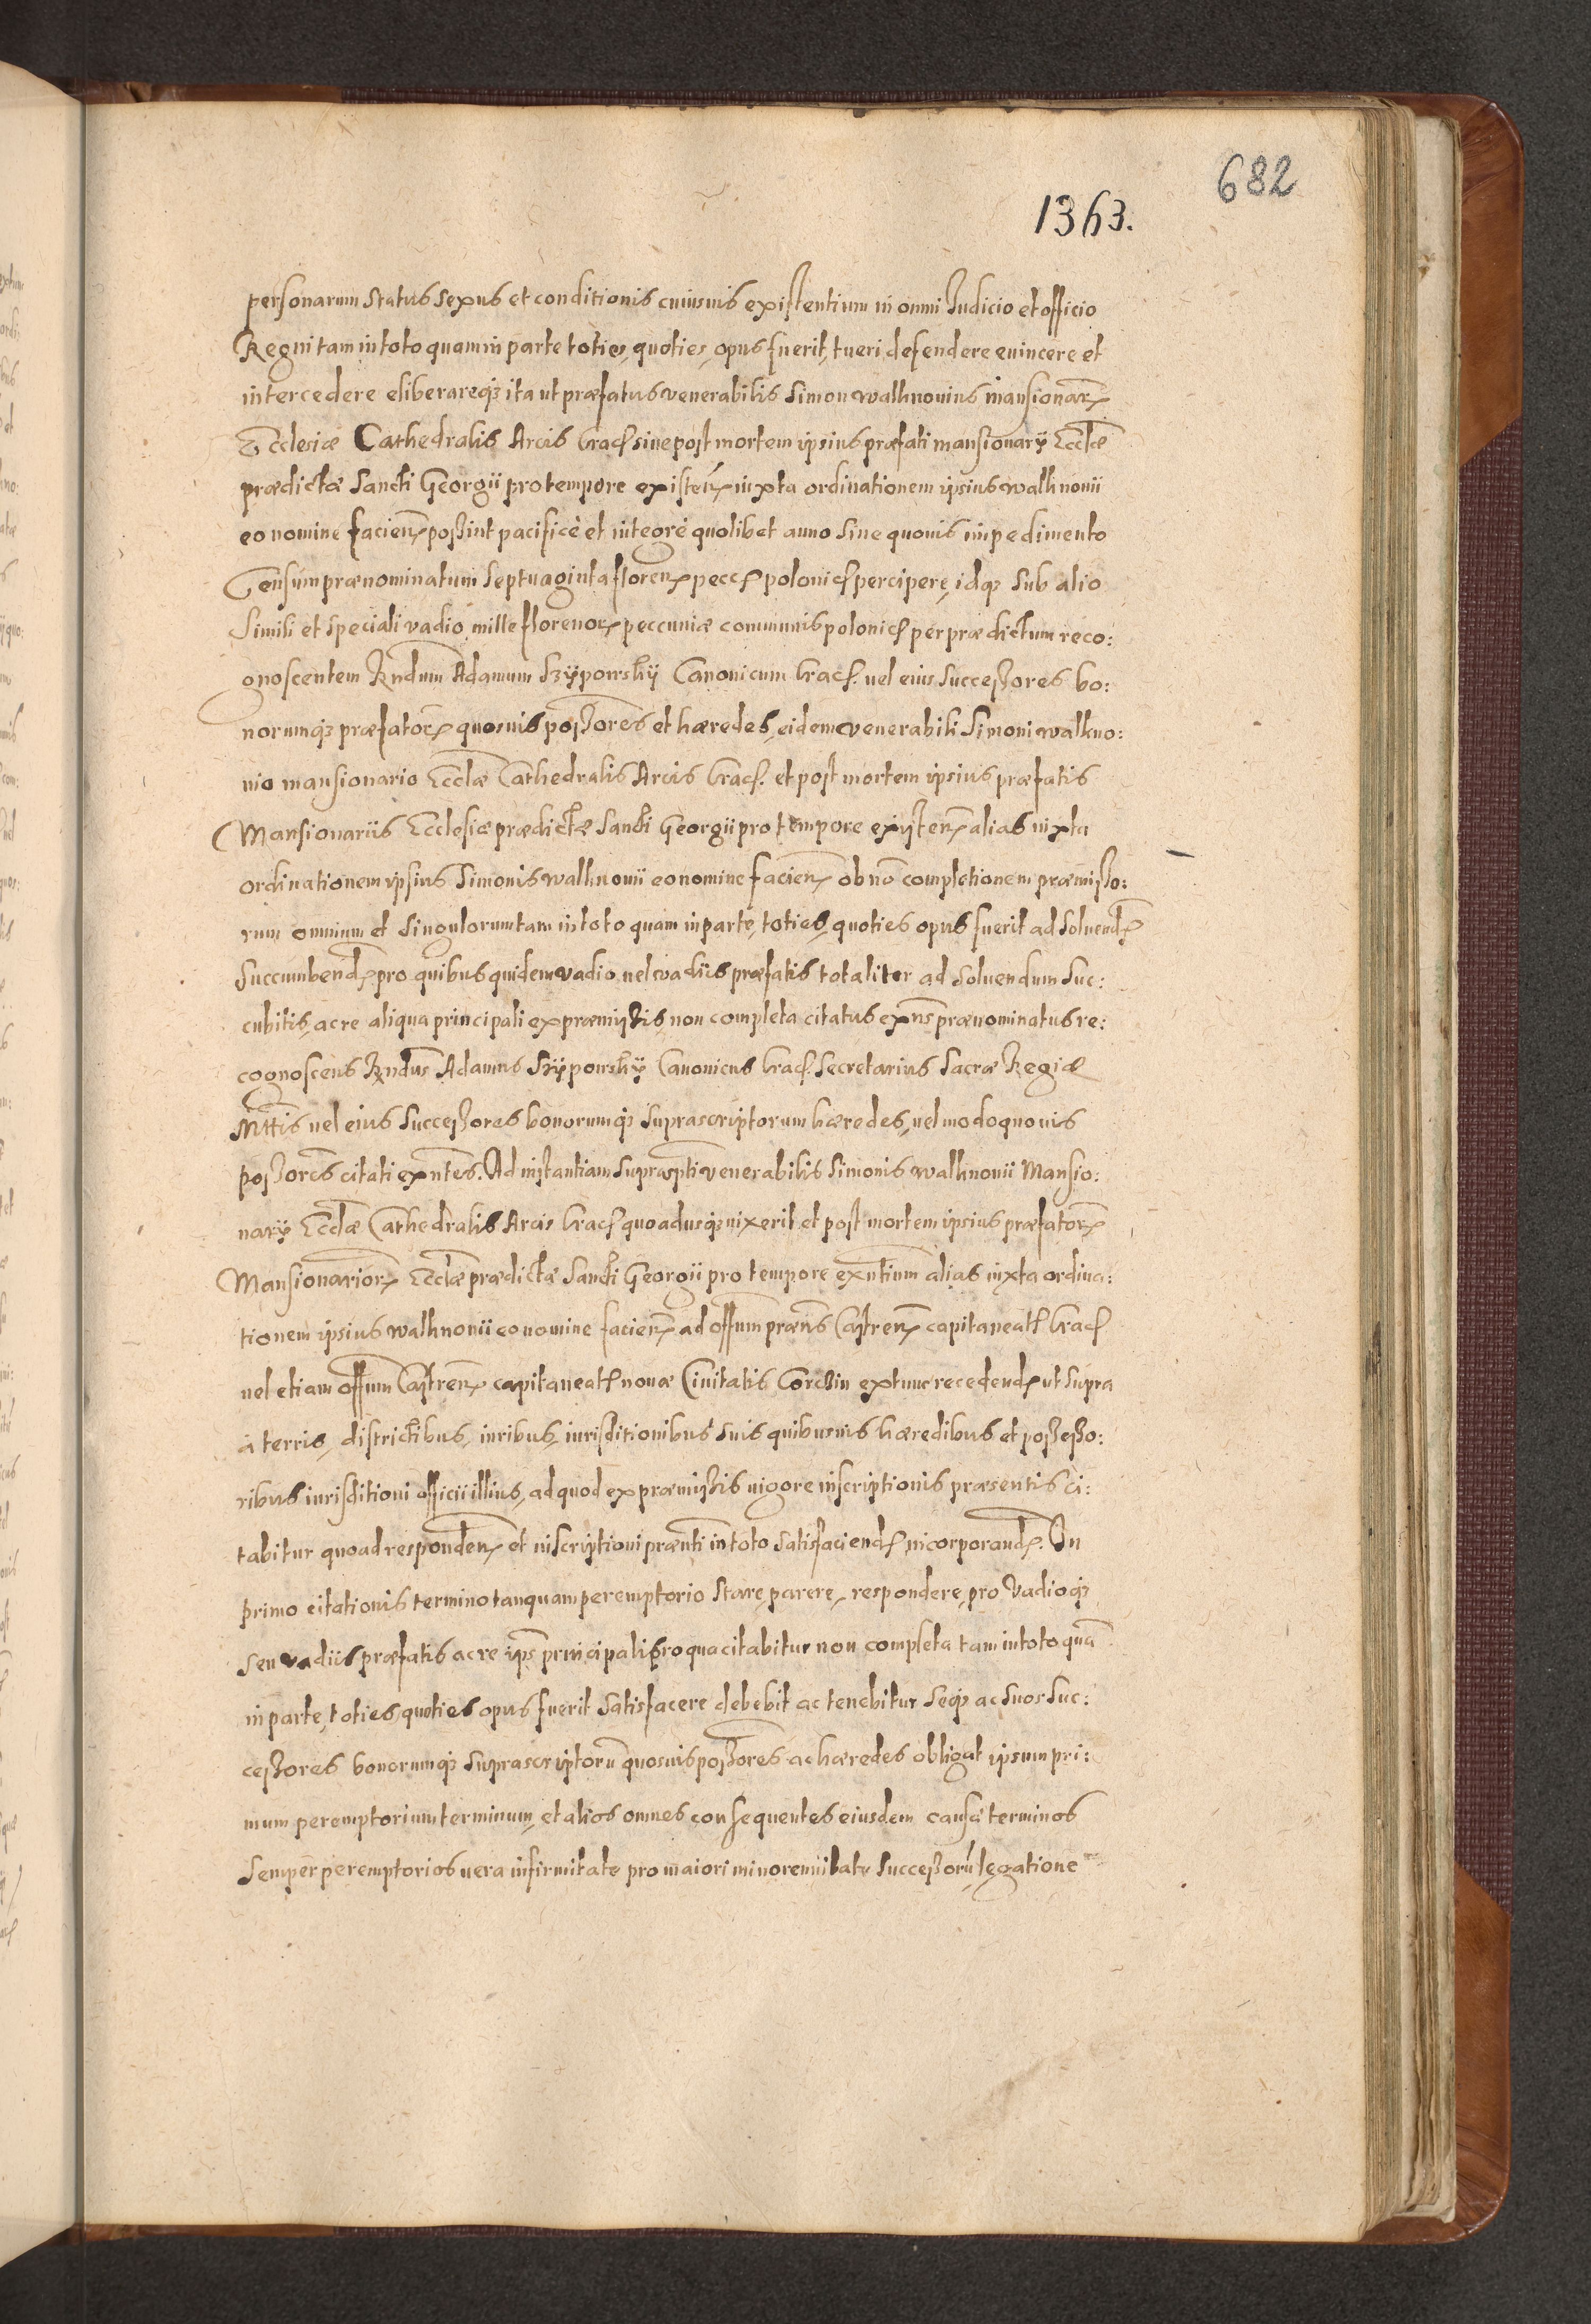 682
1363.
personarum status sexus et conditionis cuiusvis existentium in omni Judicio et officio
Regni tam in toto quam in parte toties, quoties, opus fuerit, tueri, defendere evincere et
intercedere eliberareqꝫ ita ut præfatus venerabilis Simon walknovius mansionarꝫ
Ecclesiæ Cathedralis Arcis Crac. sive post mortem ipsius præfati mansionarÿ Eccłæ
prædictæ Sancti Georgii pro tempore existenꝫ iuxta ordinationem ipsius walknovii
eo nomine facienꝫ possint pacificè et integrè quolibet anno sine quovis impedimento
Censum prænominatum septuaginta florenꝫ pecc. polonic. percipere, idqꝫ sub alio
simili et speciali vadio mille florenorꝫ peccuniæ communis polonic. per prædictum reco:
gnoscentem Rndum Adamum Szÿpowskÿ Canonicum Crac. vel eius successores bo:
norumqꝫ præfatorꝫ quosvis possores et hæredes, eidem venerabili Simoni walkno:
vio mansionario Eccłæ Cathedralis Arcis Crac. et post mortem ipsius præfatis
Mansionariis Ecclesiæ prædictæ Sancti Georgii pro tempore existenꝫ alias iuxta
ordinationem ipsius Simonis walknovii eo nomine facienꝫ ob nō completionem præmisso:
rum omnium et singulorum tam in toto quam in parte, toties, quoties opus fuerit ad solvendꝫ
succumbendꝫ pro quibus quidem vadio vel vadiis præfatis totaliter ad solvendum suc:
cubitis, ac re aliqua principali ex præmissis, non completa citatus exn̄s prænominatus re:
cognoscens Rndus Adamus Szÿpowskÿ Canonicus Crac. Secretarius Sacræ Regiæ
Mttis vel eius successores bonorumqꝫ suprascriptorum hæredes, vel modo quovis
possores citati exn̄tes. Ad instantiam suprasp̄ti venerabilis Simonis walknovii Mansio:
narÿ Eccłæ Cathedralis Arcis Crac. quoadusqꝫ vixerit et post mortem ipsius præfatorꝫ
Mansionariorꝫ Eccłæ prædictæ Sancti Georgii pro tempore exn̄tium alias iuxta ordina:
tionem ipsius walknovii eo nomine facienꝫ ad offum præn̄s Castrenꝫ capitaneat. Crac.
vel etiam offum Castrenꝫ capitaneat. novæ Civitatis Corczin extunc recedendꝫ ut supra
à terris, districtibus, iuribus, iurisditionibus suis quibusvis hæredibus et possesso:
ribus iurisditioni officii illius, ad quod ex præmissis vigore inscriptionis præsentis ci:
tabitur quoad respondenꝫ et inscriptioni præn̄ti in toto satisfaciendꝫ incorporandꝫ. In
primo citationis termino tanquam peremptorio stare, parere, respondere, pro vadioqꝫ
seu vadiis præfatis ac re ips̄ principali, pro qua citabitur non completa tam in toto quā
in parte, toties quoties opus fuerit satisfacere debebit ac tenebitur seqꝫ ac suos suc:
cessores bonorumqꝫ suprascriptorū quosvis possores ac hæredes obligat ipsum pri:
mum peremptorium terminum, et alios omnes consequentes eiusdem causæ terminos
semper peremptorios vera infirmitate pro maiori minorennitate successorū, legatione